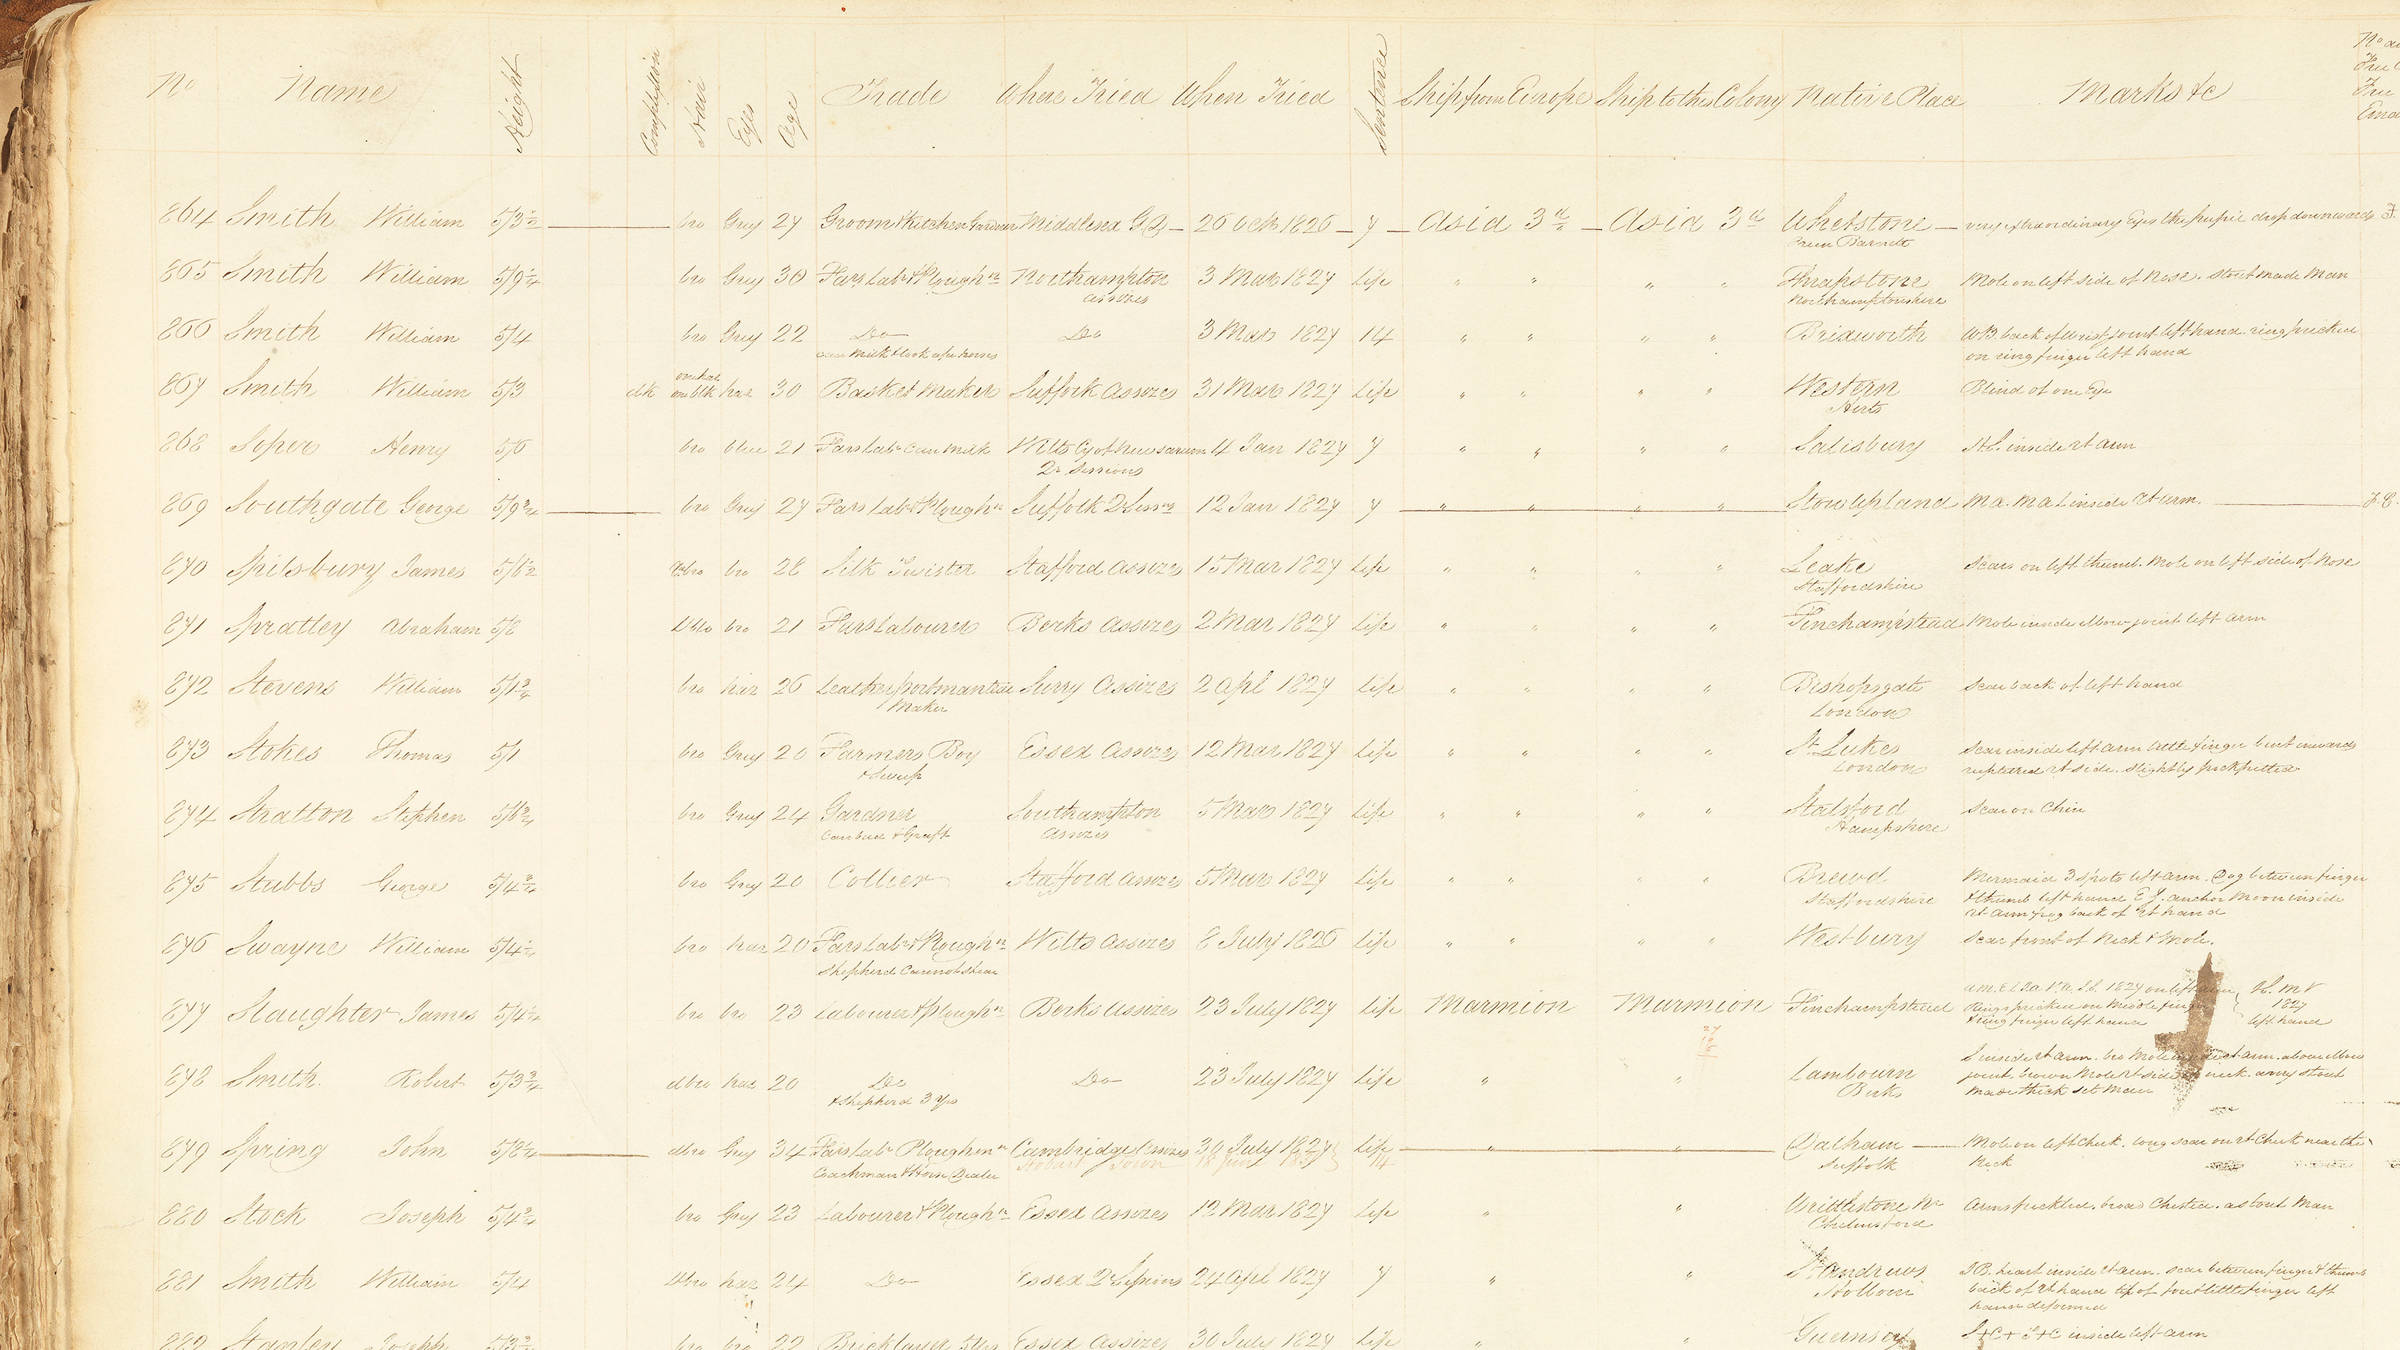 No Name Height Complexion Hair Eyes Age Trade Where Tried When Tried Sentence Ship from Europe Ship to this Colony Native Place Marks &c
864 Smith William 5/3½ bro Grey 27 Groom & Kitchen Gardner Middlesex G D 26 Octr 1826 7 Asia 3rd Asia 3rd Whetstone very extraordinary Eyes the pupil drop downwards
Barnett
865 Smith William 5/9¼ bro Grey 30 Fars Labr & Ploughn Northampton 3 Mar 1827 Life " " " " Thrapstone Mole on left side of Nose. Stout made Man
Assizes Northamptonshire
866 Smith William 5/4 bro Grey 22 Do Do 3 Mar 1827 14 " " " " Brixworth WB. back of wrist joint left hand. ring pricked
can Milk & look after horses on ring finger left hand
867 Smith William 5/3 dk blk haz 30 Basket Maker Suffolk Assizes 31 Mar 1827 Life " " " " Western Blind of one Eye
Herts
868 Soper Henry 5/0 bro blue 21 Fars Labr Can Milk Wilts Cy of New sarum 4 Jan 1827 7 " " " " Salisbury H.S. inside rt arm
Qr Sessions
869 Southgate George 5/9¾ bro Grey 27 Fars Labr & Ploughn Suffolk Q Sessns 12 Jan 1827 7 " " " " Stow Upland Ma. Ma L inside rt arm.
870 Spilsbury James 5/6½ bro bro 28 Silk Twister Stafford Assizes 15 Mar 1827 Life " " " " Leake Scars on left thumb. Mole on left side of Nose
Staffordshire
871 Spratley Abraham 5/8 bro 21 Fars Labourer Berks Assizes 2 Mar 1827 Life " " " " Finchampstead Mole inside elbow joint left arm
872 Stevens William 5/1¾ bro haz 26 Leather portmanteau Surry Assizes 2 Apl 1827 Life " " " " Bishopsgate Scar back of left hand
Maker London
873 Stokes Thomas 5/1 bro Grey 20 Farmers Boy Essex Assizes 12 Mar 1827 Life " " " " St Lukes Scar inside left arm little finger bent inwards
& Sweep London ruptured rt side. slightly pockpitted
874 Stratton Stephen 5/6¾ bro Grey 24 Gardner Southampton 5 Mar 1827 Life " " " " Scar on Chin
Can bud & Graft Assizes Hampshire
875 Stubbs George 5/4¾ bro Grey 20 Collier Stafford Assizes 5 Mar 1827 Life " " " " Brewd Mermaid 3 spots left arm. Dog between finger
Staffordshire & thumb left hand E J. anchor Moon inside
rt arm frog back of rt hand
876 Swayne William 5/4½ bro haz 20 Fars Labr & Ploughn Wilts Assizes 8 July 1826 Life " " " " Westbury Scar front of Neck & Mole.
Shepherd Cannot shear
877 Slaughter James 5/4½ bro bro 23 Labourer & Ploughn Berks Assizes 23 July 1827 Life Marmion Marmion Finchampstead 1827 on left arm H. M V
Rings pricked on Middle finger 1827
& ring finger left hand left hand
878 Smith Robert 5/3¾ dbro haz 20 Do Do 23 July 1827 Life " " Lambourn S inside rt arm. bro Mole inside rt arm. above elbow
& Shepherd 3 Yrs Berks joint. brown Mole rt side of neck. a very stout
made thick set Man
879 Spring John 5/8½ dbro Grey 34 Fars Labr Ploughmn Cambridge Assizes 30 July 1827 Life " " Dalham Mole on left Cheek. long scar on rt Cheek near the
Coachman & Horse Dealer 14 Suffolk Neck
880 Stock Joseph 5/4¾ bro Grey 23 Labourer & Ploughn Essex Assizes 12 Mar 1827 Life " " Writtlestone Nr Arms freckled. broad Chested. a stout Man
Chelmsford
881 Smith William 5/4 haz 24 Do Essex Q Sessions 24 Apl 1827 7 " " St Andrews J B. heart inside rt arm. scar between finger & thumb
Holborn back of rt hand tip of forelittle finger left
hand deformed
882 Stanley Joseph 5/3¾ bro bro 22 Bricklayer 5 Yrs Essex Assizes 30 July 1827 Life " " Guernsey inside left arm